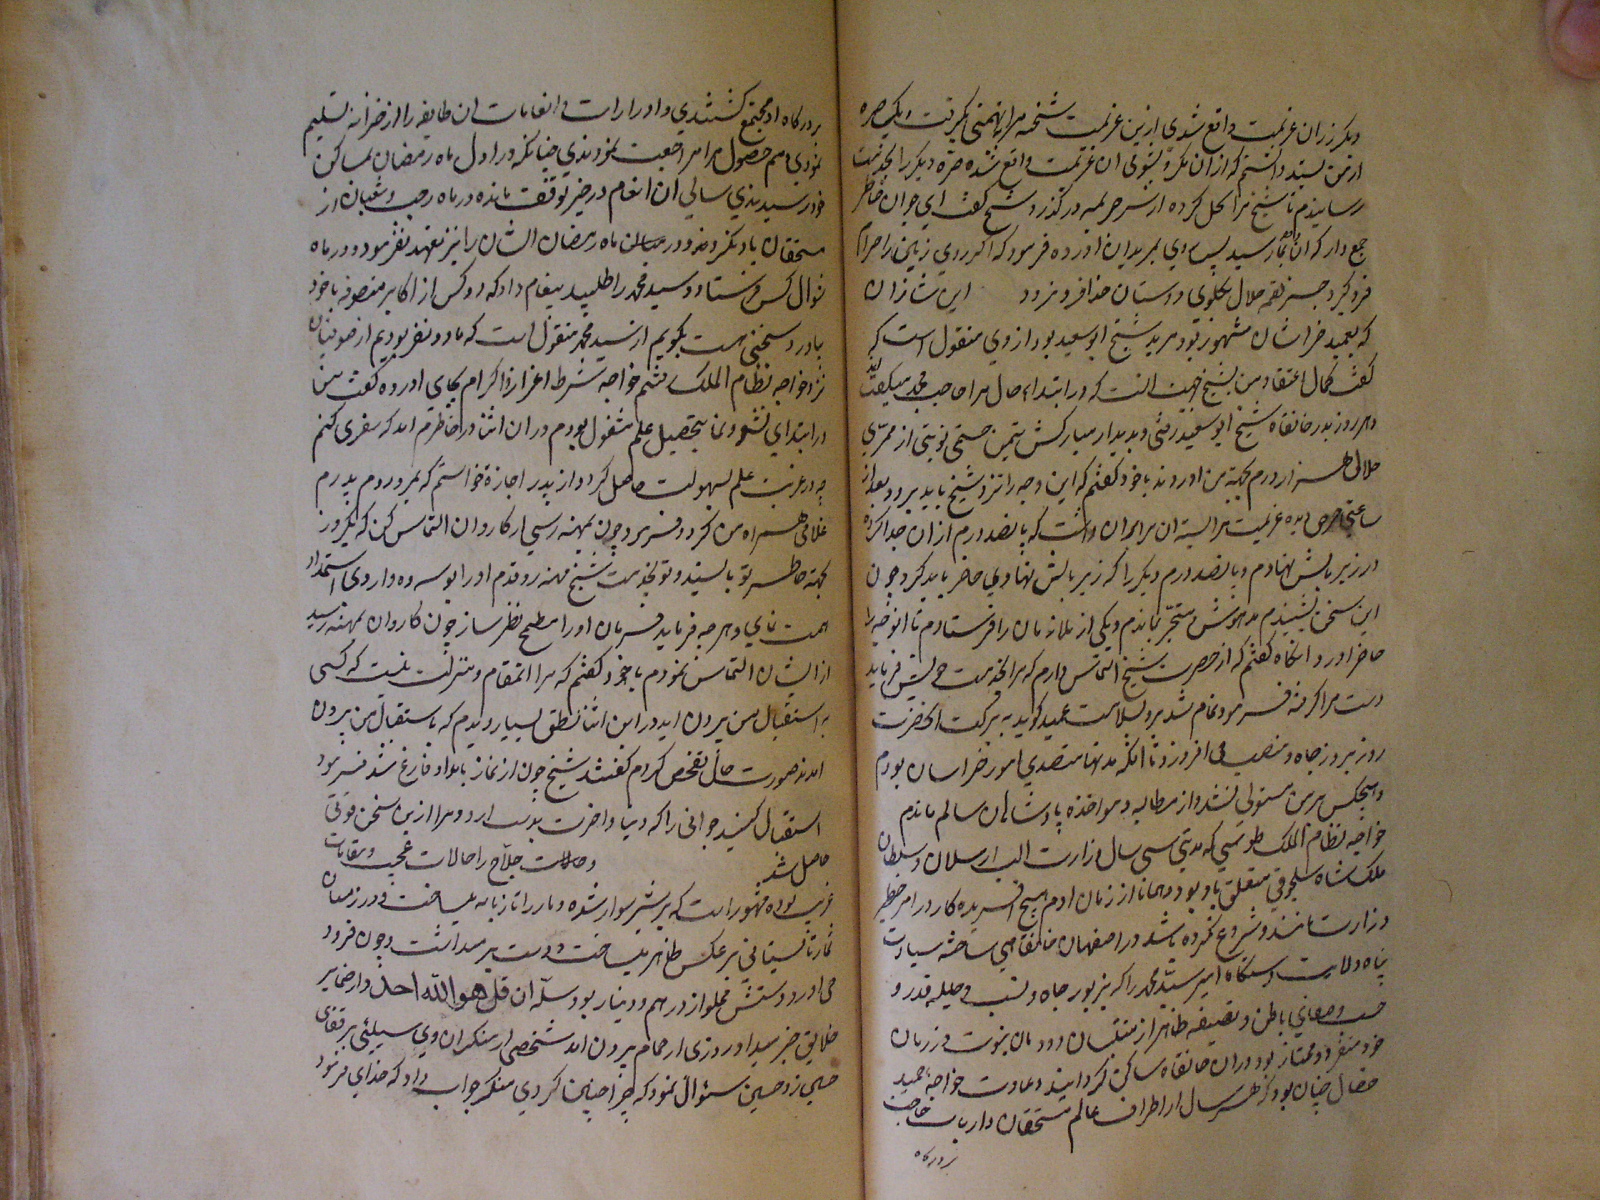 دیگر زر ان عزیمت واقع شدی ازین عزیمت شحنه مرا بتهمتی بگرفت و یک صره
از من بستد دانستم که از آن
رسانیدم تا شیخ مرا بحل کرده از سر جریمه درگذرد شیخ گفت ای جوان خاطر
جمع دار که آن بما رسید پس روی بمریدان آورده فرمود که اگر روی زمین را حرام
فرو گیرد جز لقمه حلال بگلوی دوستان خدا فرو نرود
که بعمید خراسان مشهور بود مرید شیخ ابوسعید بود از وی منقول است که
گفت کمال اعتقاد من بشیخ ازین جهت است که در ابتداء حال مرا حاجب محمد میگفتند
و هر روز بدر خانقاه شیخ ابوسعید رفتی و بدیدار مبارکش تیمن جستمی نوبتی از ممری
حلالی هزار درم بجهة من آوردند با خود گفتم که این وجه را نزد شیخ باید برد و بعد از
ساعتی عزیمت بر آن داشت که پانصد درم از آن جدا کرده
در زیر بالش نهادم و پانصد درم دیگر را که زیر بالش نهادی حاضر باید کرد چون
این سخن بشنیدم مدهوش و متحیر بماندم و یکی از ملازمان را فرستادم تا آنوجه را
حاضر آورد و آنگاه گفتم که از حضرت شیخ التماس دارم که مرا بخدمت خویش فرماید
دست مرا گرفته فرمود تمام شد برو بسلامت عمید گوید به برکت آنحضرت
روز بروز جاه و منصب می افزود تا آنکه مدتها متصدی امور خراسان بودم
و هیچکس بر من مستولی نشد و از مطالبه و مواخذه پادشاهان سالم ماندم
خواجه نظام الملک طوسی که مدتی سی سال وزارت الب ارسلان و سلطان
ملکشاه سلجوقی متعلق باو بود و همانا از زمان آدم هیچ آفریده کار در امر خطیر
وزارت مانند او شروع نکرده باشد در اصفهان خانقاهی ساخته سیادت
پناه ولایت دستگاه امیر سید محمد را که بزیور جاه و نسب و حلیه قدر و
حسب و صفای باطن و تصفیه ظاهر از منتسبان دودمان نبوت در زمان
خود منفرد و ممتاز بود در آن خانقاه ساکن گردانید و عادت خواجه حمید
خصال چنان بود که هر سال از اطراف عالم مستحقان و ارباب حاجت
بدرگاه
بدرگاه او مجتمع گشتندی و ادرارات و انعامات آن طایفه را از خزانه تسلیم
نمودی هم حصول مرام مراجعت نمودندی چنانکه در اول ماه رمضان بمساکن
خود رسیدندی سالی آن انعام در حیز توقف مانده در ماه رجب و شعبان از
مستحقان یاد نکرد و در ماه رمضان ایشان را نیز تعهد نفرمود و در ماه
شوال کس فرستاد و سید محمد را طلبید پیغام داد که دو کس از اکابر متصوفه با خود
بیاورد سخنی هست بگویم از سید محمد منقول است که ما دو نفر بودیم از صوفیان
نزد خواجه نظام الملک شدیم خواجه شرط اعزاز و اکرام بجای آورده گفت من
در ابتدای نشو و نما بتحصیل علم مشغول بودم در آن اثنا در خاطرم آمد که سفری کنم
چه در غربت علم بسهولت حاصل گردد از پدر اجازة خواستم که بمرو روم پدرم
غلامی همراه من کرد و فرمود چون بمهنه رسی از کاروان التماس کن که یکروز
بجهة خاطر تو بایستند و تو بخدمت شیخ مهنه رو قدم او را بوسه ده و از وی استمداد
همت نمای و هر چه فرماید فرمان او را مطمح نظر ساز چون کاروان بمهنه رسید
از ایشان التماس نمودم با خود گفتم که مرا آنمقام و منزلت نیست که کسی
به استقبال من بیرون آید در این اثنا خلق بسیار دیدم که باستقبال من بیرون
آمدند صورت حال تفحص کردم گفتند شیخ چون از نماز بامداد فارغ شد فرمود
استقبال کنید جوانی را که دنیا و آخرت بدست آرد و مرا ازین سخن ذوقی
حاصل شد و حلاج را حالات عجیب و مقامات
غریب بوده مشهور است که بر شیر سوار شده و مار را تازیانه میساخت و در زمستان
ثمار تابستانی بر عکس ظاهر میساخت و دست بر میداشت و چون فرود
می آورد دستش مملو از درهم و دینار بود سکه آن قل هو الله احد و از ضمایر
خلایق خبر میداد روزی از حمام بیرون آمد شخصی از منکران وی سیلئی بر قفای
حسین زد حسین سئوال نمود که چرا چنین کردی منکر جواب داد که خدای فرمود